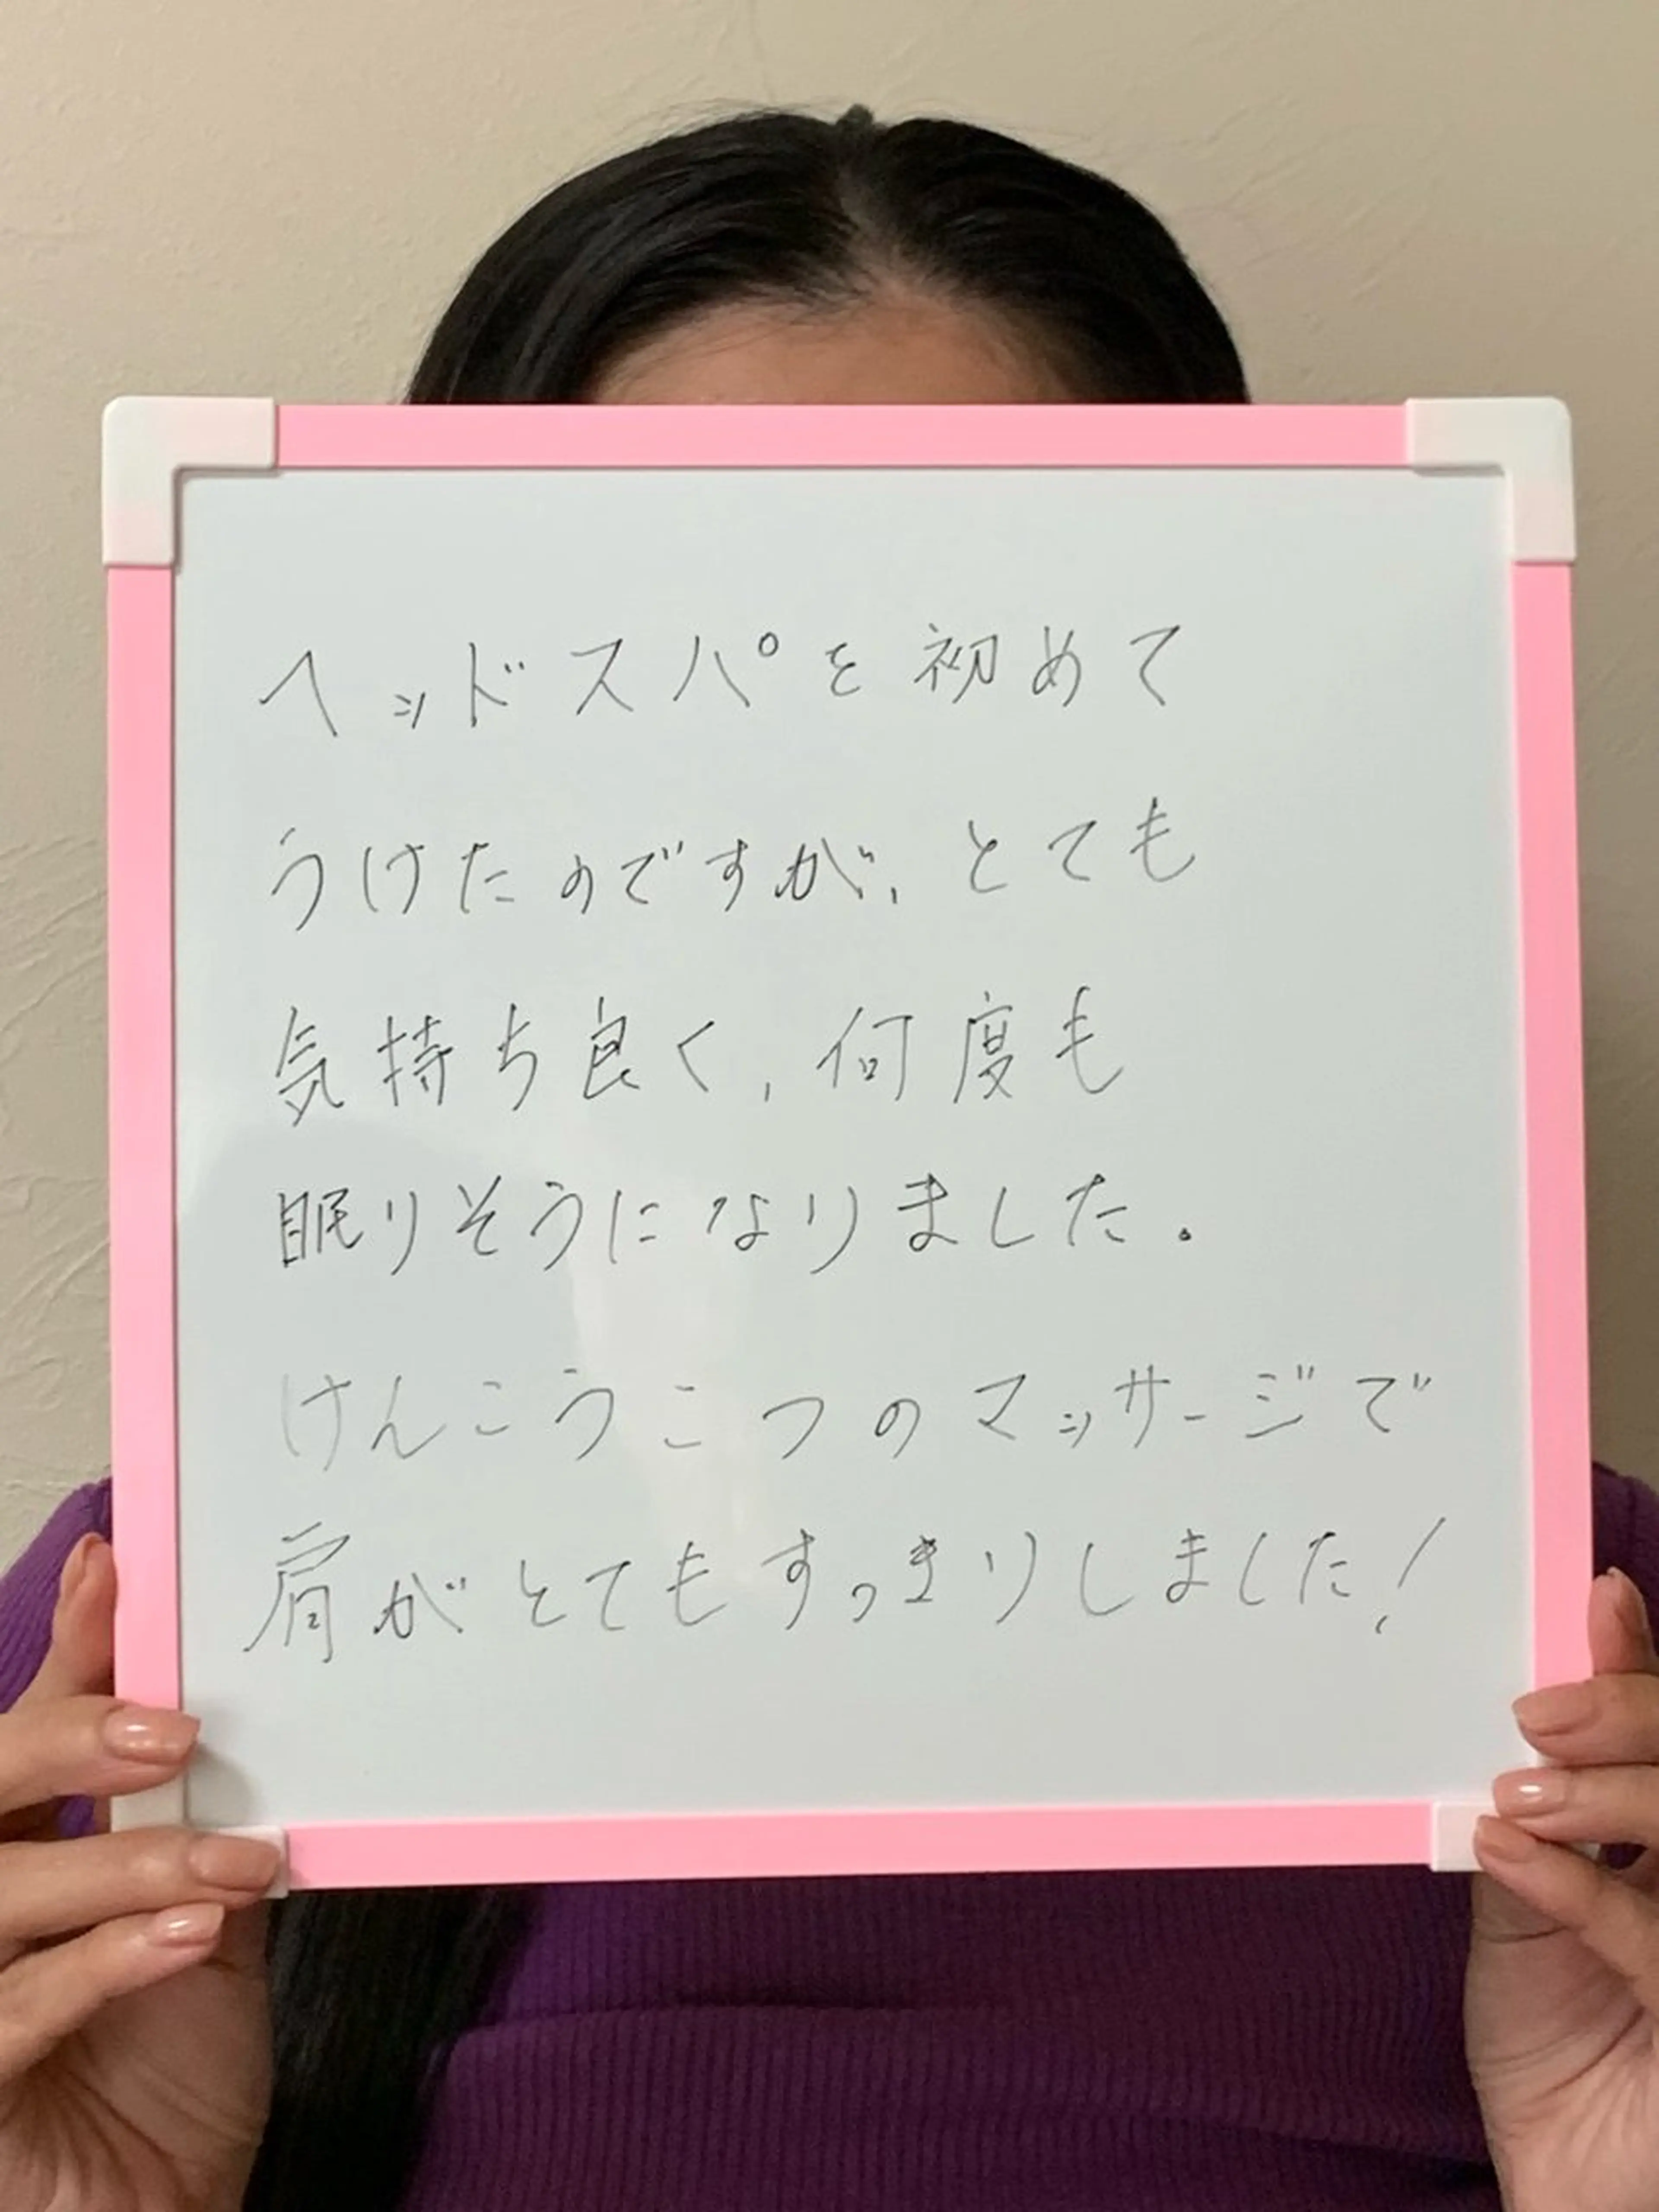 ヘッドスパを初めて
うけたのですが、とても
気持ち良く、何度も
眠りそうになりました。
けんこうこつのマッサージで
肩がとてもすっきりしました!